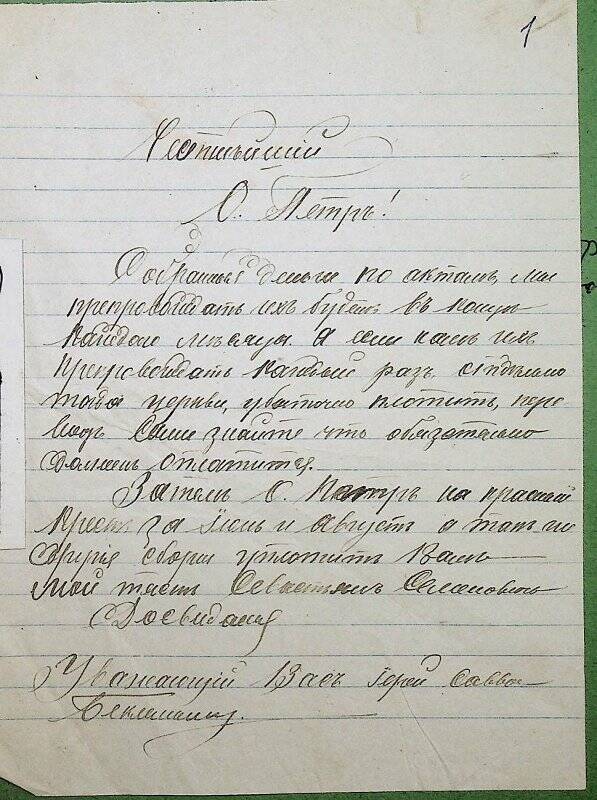 1
Честнѣйшій
О. Петръ!
Собранные деньги по актамъ, мы
препровождать ихъ будемъ въ концѣ
каждаго мѣсяца. А если намъ ихъ
препровождать каждый разъ, отдѣльно
то церкви, убыточно плотить, пере
водъ Сами знайте что обязательно
долженъ оплатится.
Затемъ О. Петръ на красный
Крестъ за Іюнь и Августъ а такъ же
другія сборы уплотитъ Вамъ
мой тесть Севастьянъ Семеновичъ
Досвиданія
Уважающій Васъ Іерей Савва